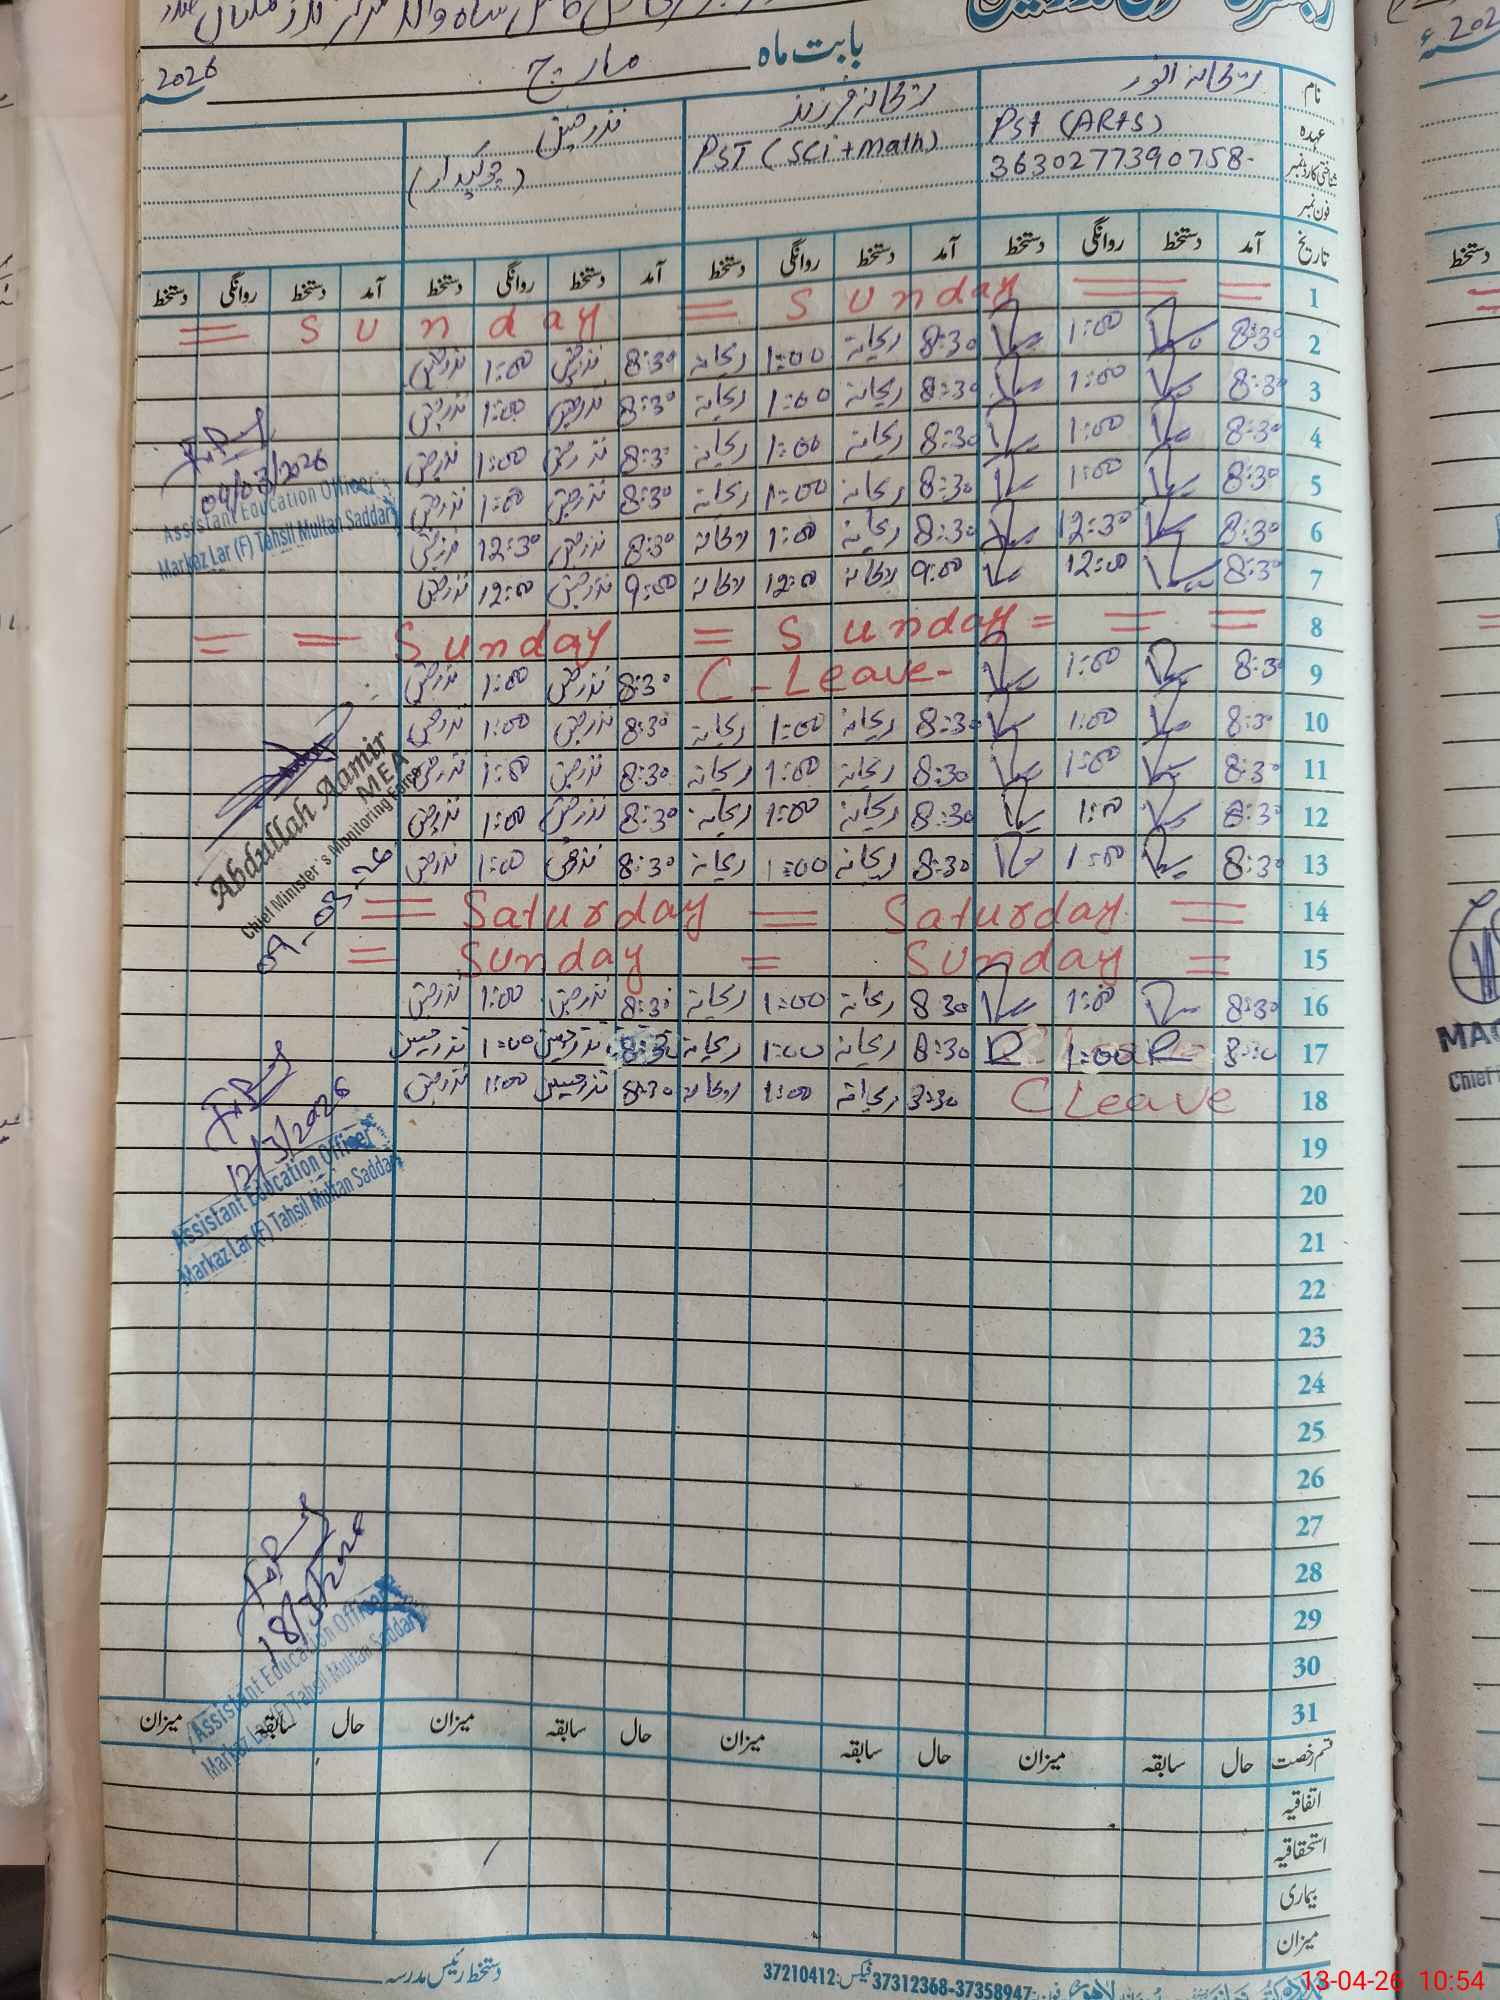 2026 بابت ماہ مارچ
نام ریحانہ انور ریحانہ فرزند
عہدہ Pst (ARTS) PST (Sci + Math) (چوکیدار)
شناختی کارڈ نمبر 3630277390758-
فون نمبر
تاریخ آمد دستخط روانگی دستخط آمد دستخط روانگی دستخط آمد دستخط روانگی دستخط آمد دستخط روانگی دستخط
1 = Sunday = Sunday =
2 8:30 1:00 8:30 ریحانہ 1:00 ریحانہ 8:30 1:00
3 8:30 1:00 8:30 ریحانہ 1:00 ریحانہ 8:30 1:00
4 8:30 1:00 8:30 ریحانہ 1:00 ریحانہ 8:30 1:00
5 8:30 1:00 8:30 ریحانہ 1:00 ریحانہ 8:30 1:00
6 8:30 12:30 8:30 ریحانہ 1:00 ریحانہ 8:30 12:30
7 8:30 12:00 9:00 ریحانہ 12:00 ریحانہ 9:00 12:00
8 = = = Sunday = Sunday = =
9 8:30 1:00 C-Leave- 8:30 1:00
10 8:30 1:00 8:30 ریحانہ 1:00 ریحانہ 8:30 1:00
11 8:30 1:00 8:30 ریحانہ 1:00 ریحانہ 8:30 1:00
12 8:30 1:00 8:30 ریحانہ 1:00 ریحانہ 8:30 1:00
13 8:30 1:00 8:30 ریحانہ 1:00 ریحانہ 8:30 1:00
14 = Saturday = Saturday =
15 = Sunday = Sunday =
16 8:30 1:00 8:30 ریحانہ 1:00 ریحانہ 8:30 1:00
17 8:30 1:00 8:30 ریحانہ 1:00 ریحانہ 8:30 نذر حسین 1:00 نذر حسین
18 C Leave 8:30 ریحانہ 1:00 ریحانہ 8:30 نذر حسین 1:00
19
20
21
22
23
24
25
26
27
28
29
30
31
قسم رخصت حال سابقہ میزان حال سابقہ میزان حال سابقہ میزان حال سابقہ میزان
اتفاقیہ
استحقاقیہ
بیماری
میزان
دستخط رئیس مدرسہ
لاہور فون: 37358947-37312368 فیکس: 37210412
04/03/2026
Assistant Education Officer
Markaz Lar (F) Tahsil Multan Saddar
Abdullah Aamir
MEA
Chief Minister's Monitoring Force
09-03-26
12/3/2026
Assistant Education Officer
Markaz Lar (F) Tahsil Multan Saddar
18/3/2026
Assistant Education Officer
Markaz Lar (F) Tahsil Multan Saddar
دستخط
Chief
13-04-26 10:54